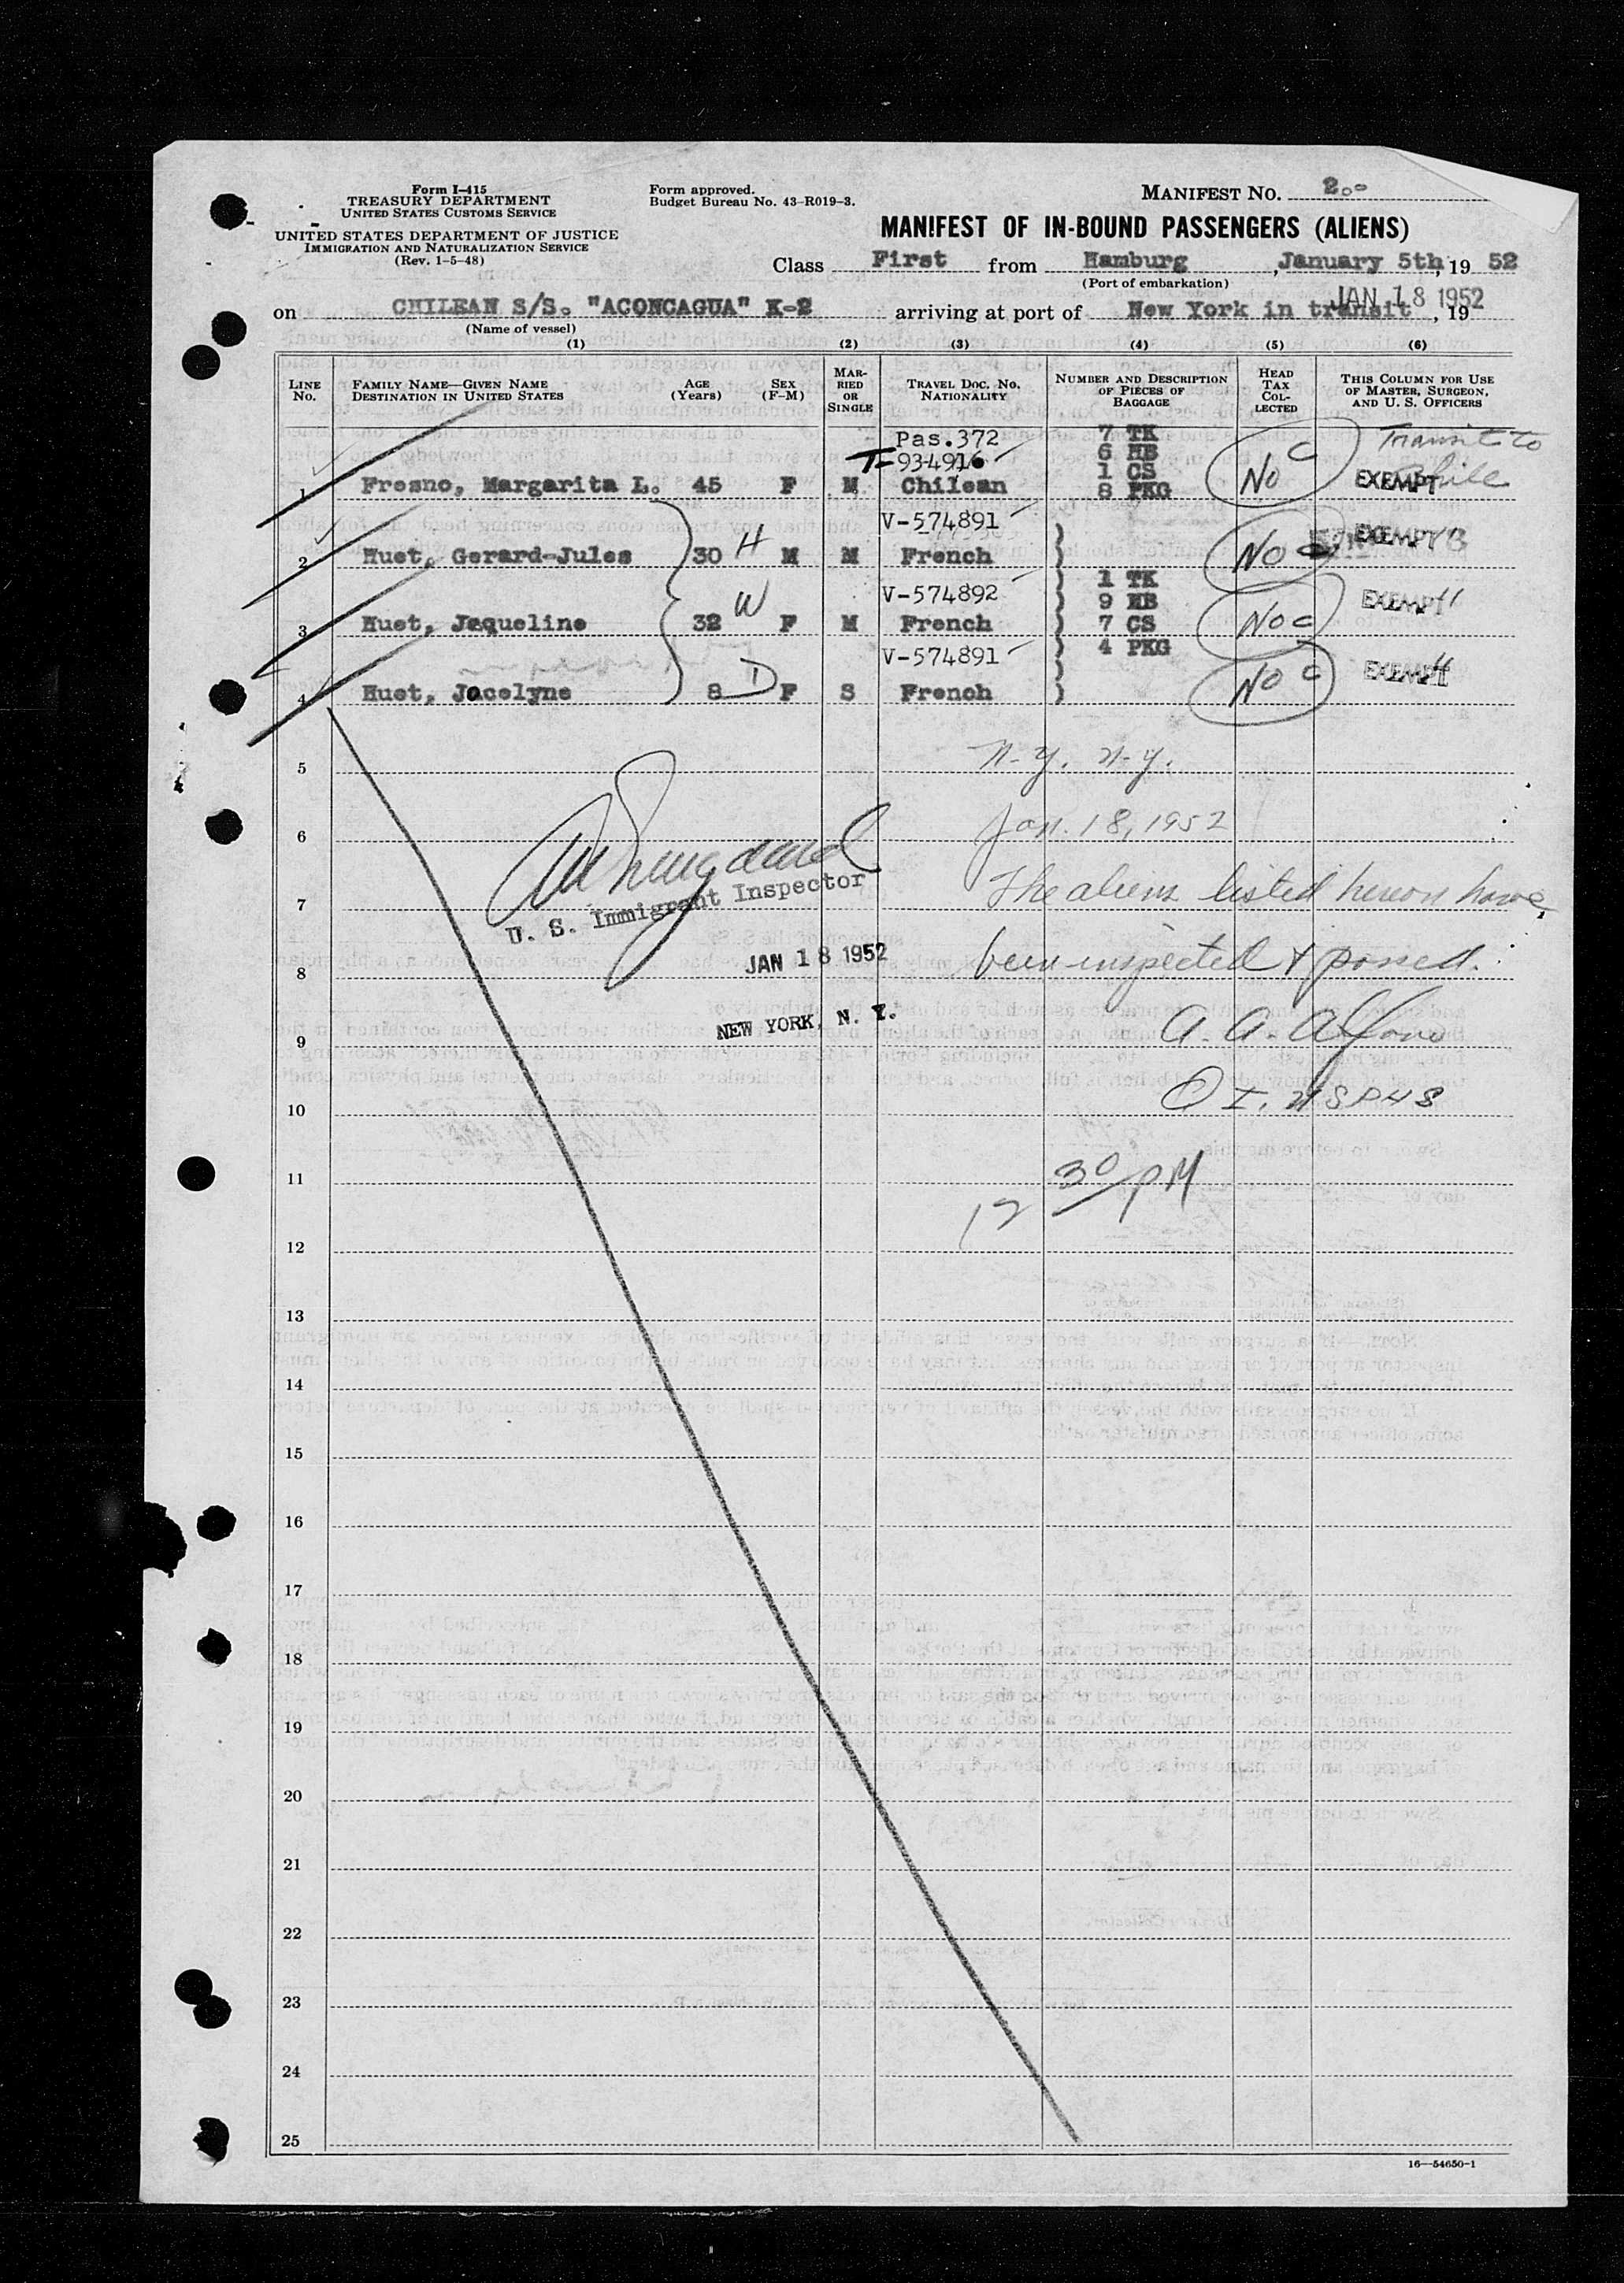 Form I-415
TREASURY DEPARTMENT
UNITED STATES CUSTOMS SERVICE
UNITED STATES DEPARTMENT OF JUSTICE
IMMIGRATION AND NATURALIZATION SERVICE
(Rev. 1-5-48)
Form approved.
Budget Bureau No. 43-R019-3.
MANIFEST NO. 2.-
MANIFEST OF IN-BOUND PASSENGERS (ALIENS)
Class First from Hamburg, January 5th, 19 52
(Port of embarkation)
JAN 18 1952
on CHILEAN S/S. "ACONCAGUA" K-2 arriving at port of New York in transit, 19
(Name of vessel)
(1) (2) (3) (4) (5) (6)
LINE No. FAMILY NAME—GIVEN NAME DESTINATION IN UNITED STATES AGE (Years) SEX (F-M) MARRIED OR SINGLE TRAVEL DOC. NO. NATIONALITY NUMBER AND DESCRIPTION OF PIECES OF BAGGAGE HEAD TAX COLLECTED THIS COLUMN FOR USE OF MASTER, SURGEON, AND U. S. OFFICERS
Pas.372 7 TK Transit to
T-934916 6 HB
1 CS Chile
1 Fresno, Margarita L. 45 F M Chilean 8 PKG No C EXEMPT
V-574891 EXEMPT
2 Huet, Gerard-Jules 30 H M M French No C
V-574892 1 TK
9 HB EXEMPT
3 Huet, Jaqueline 32 W F M French 7 CS No C
V-574891 4 PKG
EXEMPT
4 Huet, Jocelyne 8 D F S French No C
5 N.Y. N.Y.
6 Jan. 18, 1952
7 The aliens listed hereon have
U. S. Immigrant Inspector
8 been inspected & passed.
JAN 18 1952
NEW YORK, N. Y.
9 A. A.
10 I. USPHS
11
12 30 PM
12
13
14
15
16
17
18
19
20
21
22
23
24
25
16—54650-1